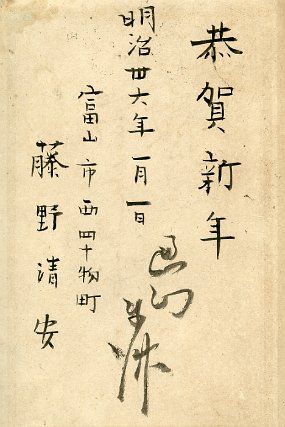 恭賀新年
明治卅六年一月一日
富山市西四十物町
藤野清安